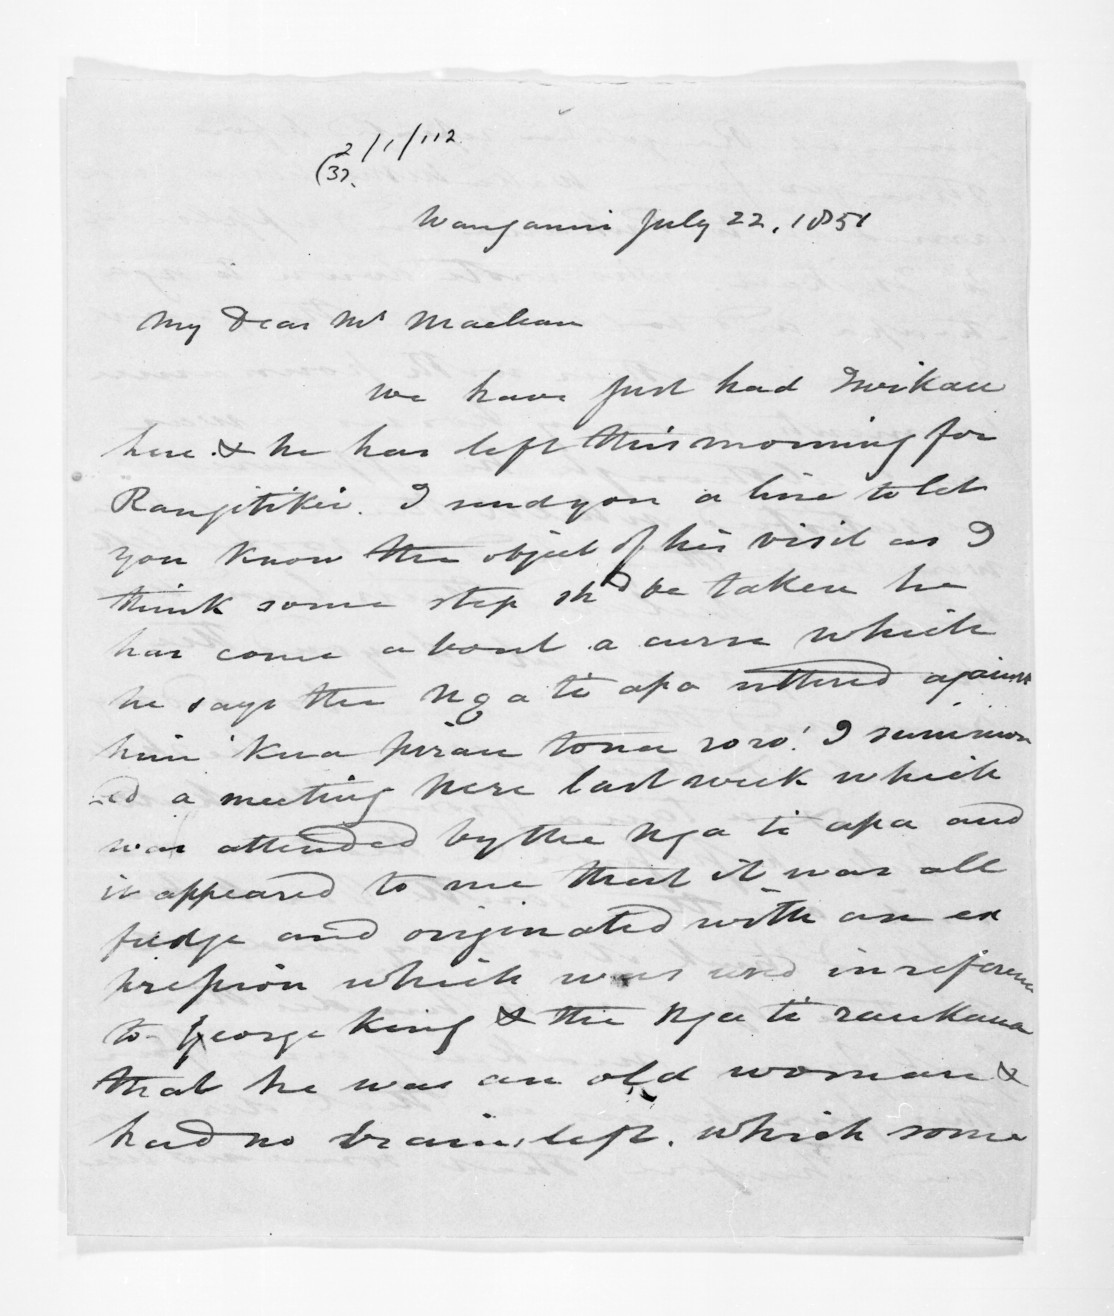 2/1/112
(37.
Wanganui July 22, 1851
My Dear Mr Maclean
We have just had Iwikau
here. & he has left this morning for
Rangitikei. I send you a line to let
you know the object of his visit as I
think some step shd be taken he
has come about a curse which
he says the Nga ti apa uttered against
him 'kua pirau tona roro'. I summon
-ed a meeting here last week which
was attended by the Nga ti apa and
it appeared to me that it was all
fudge and originated with an ex
pression which was used in reference
to George King & the Nga ti raukaua
that he was an old woman &
had no brains left. which some